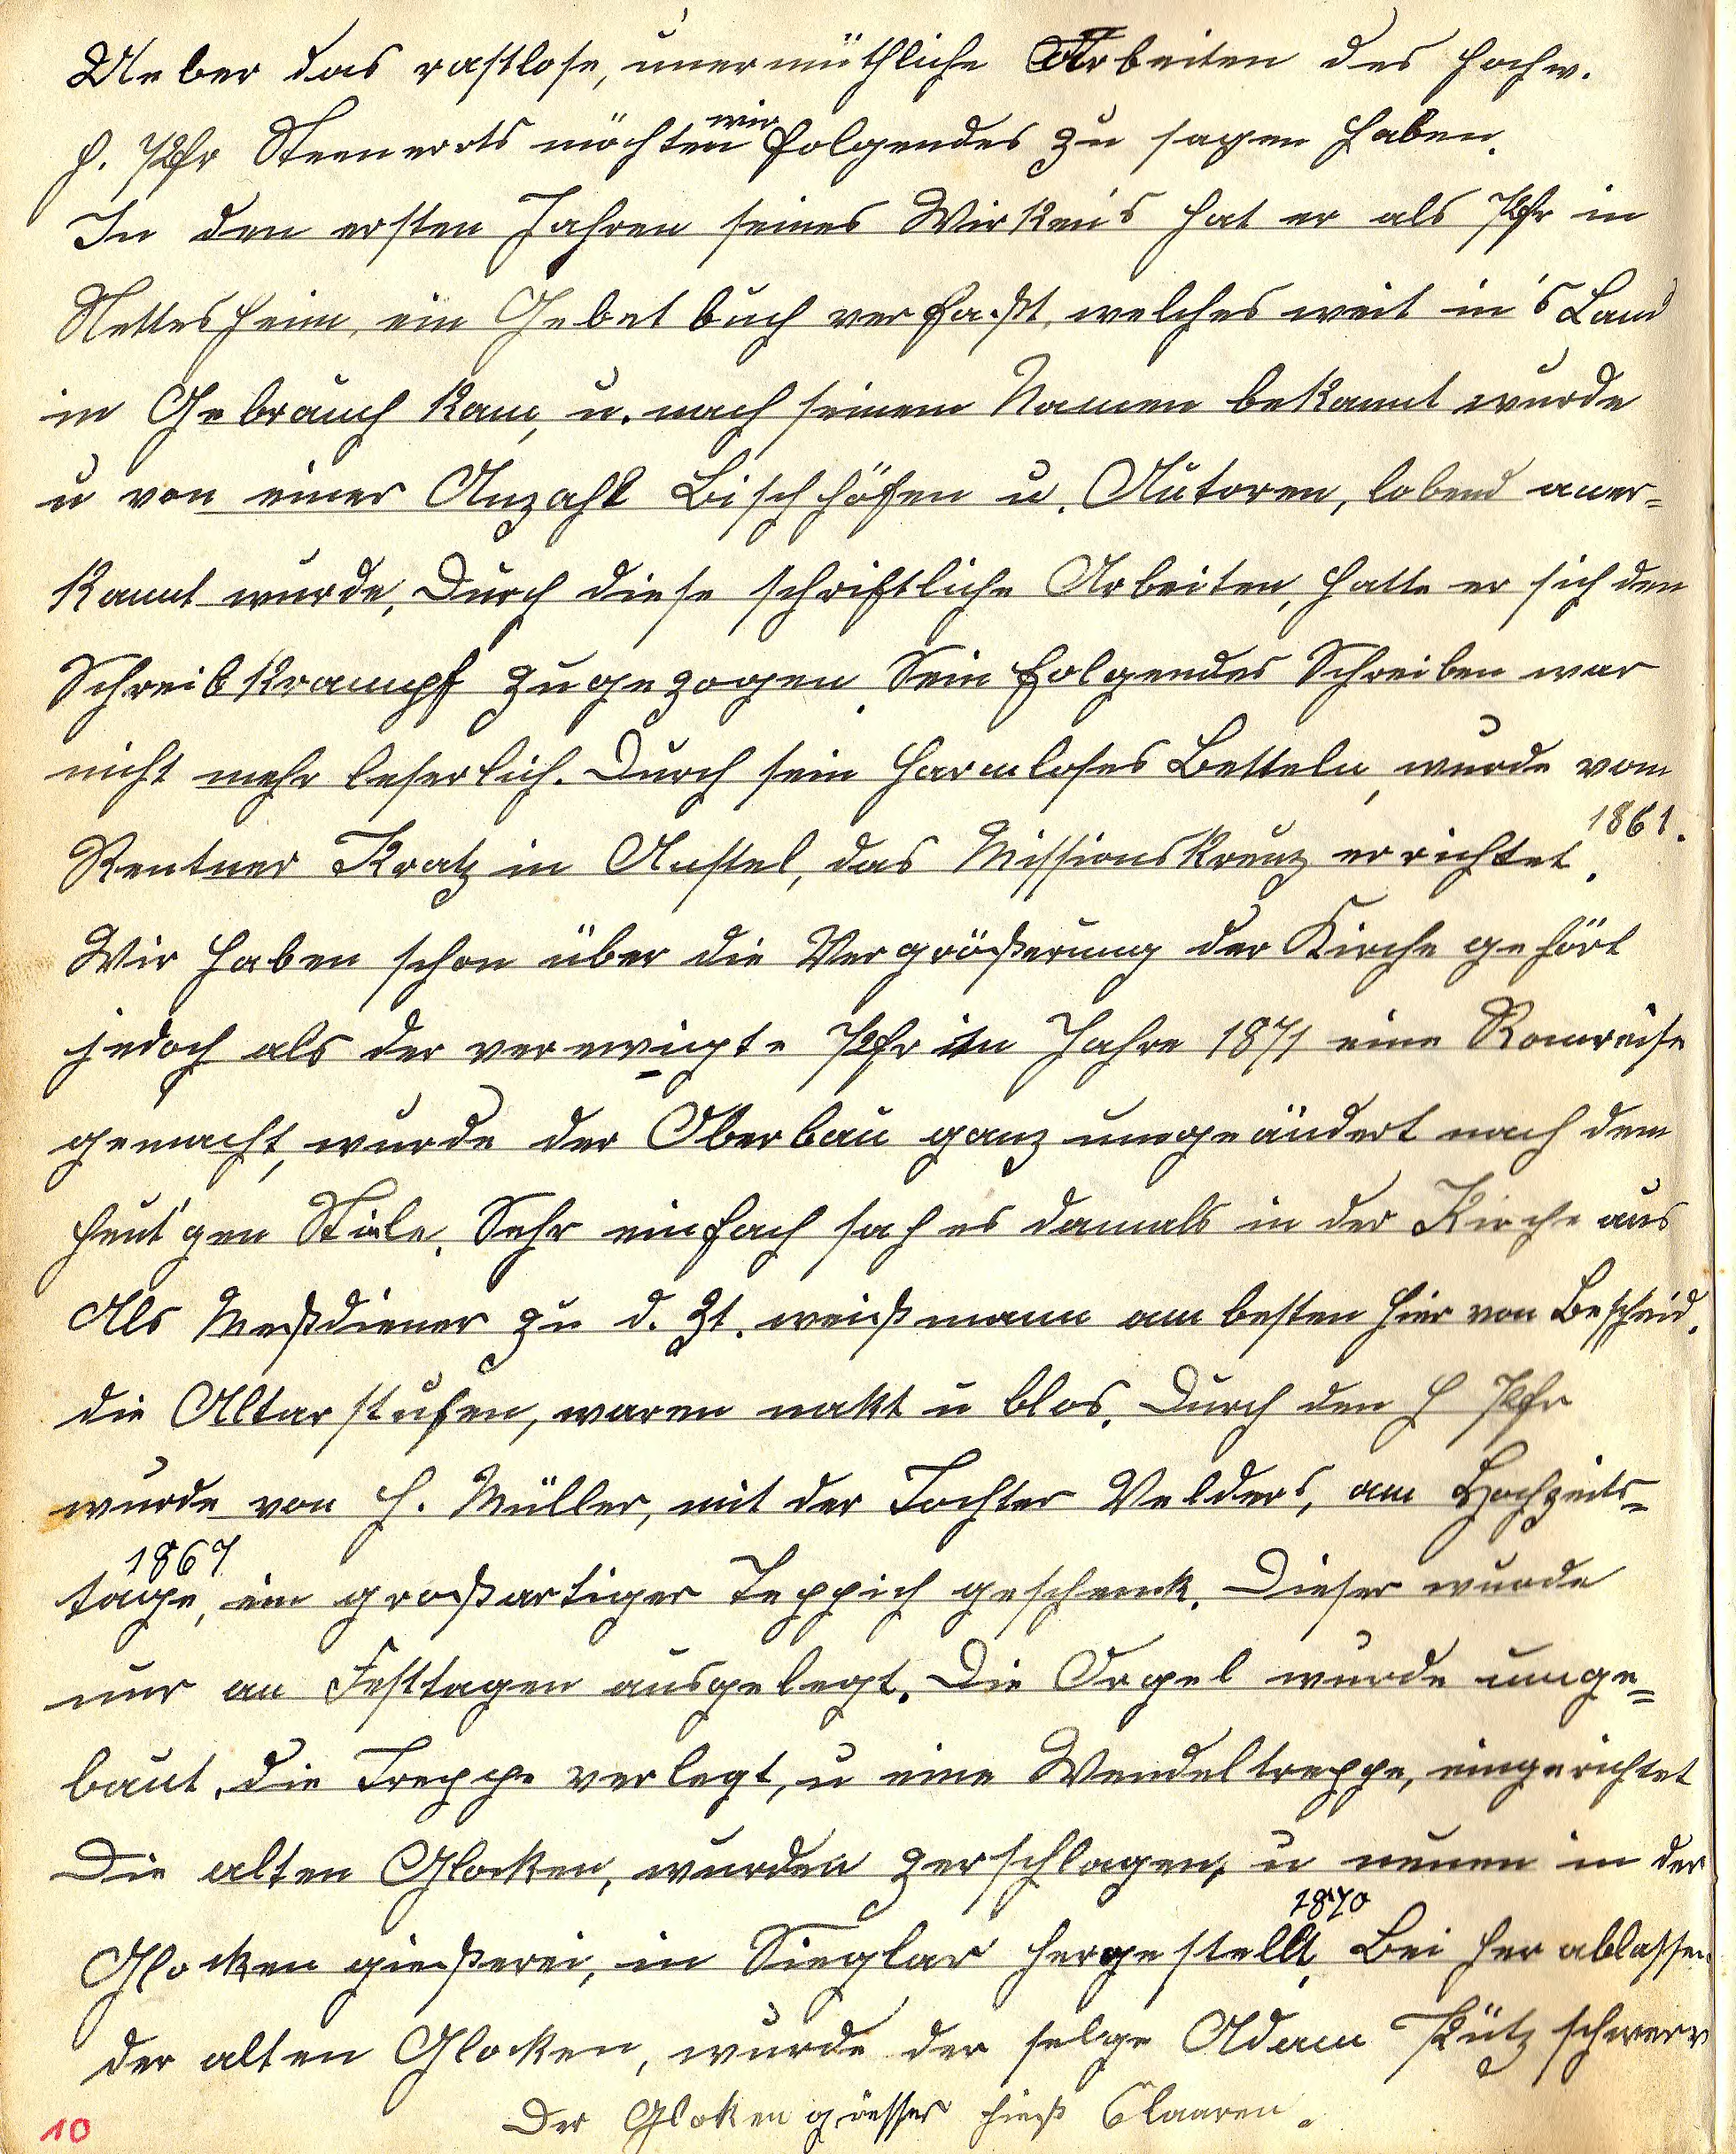 Ueber das rastlose, unermüthliche Arbeiten des hochw.
H. Pfr Steenerots möchten wir folgendes zu sagen haben.
In den ersten Jahren seines Wirken's hat er als Pfr in
Nettesheim, ein Gebetbuch verfaßt, welches weit in's Land
in Gebrauch kam, u. nach seinem Namen bekannt wurde
u von einer Anzahl Bischhöfen u. Autoren, lobend aner=
kannt wurde, Durch diese schriftliche Arbeiten, hatte er sich den
Schreibkrampf zugezogen. Sein folgendes Schreiben war
nicht mehr leserlich. Durch sein harmloses Betteln, wurde vom
Rentner Kratz in Anstel, das Missionskreuz errichtet. 1861.
Wir haben schon über die Vergrößerung der Kirche gehört
jedoch als der verewigte Pfr im Jahre 1871 eine Romreise
gemacht, wurde der Oberbau ganz umgeändert nach dem
heut'gen Stiele. Sehr einfach sah es damals in der Kirche aus
Als Meßdiener zu d. Zt. weiß mann am besten hier von Bescheid.
die Altarstufen, waren nakt u blos. Durch den H Pfr
wurde von H. Müller, mit der Tochter Velders, am Hochzeits=
tage, 1867 ein großartiger Teppich geschenk. Dieser wurde
nur an Festtagen ausgelegt. Die Orgel wurde umge=
baut, die Treppe verlegt, u eine Wendeltreppe, eingerichtet
Die alten Glocken, wurden zerschlagen, u neuen in der
Glocken gießerei, in Sieglar hergestellt. 1870 Bei herablassen
der alten Glocken, wurde der selge Adam Pütz schwerr
Der Gloken giesser hieß Claaren.
10